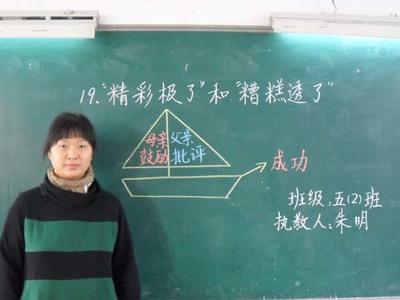 19、“精彩极了”和“糟糕透了”
母亲 父亲
鼓励 批评
成功
班级:五(2)班
执教人:朱明